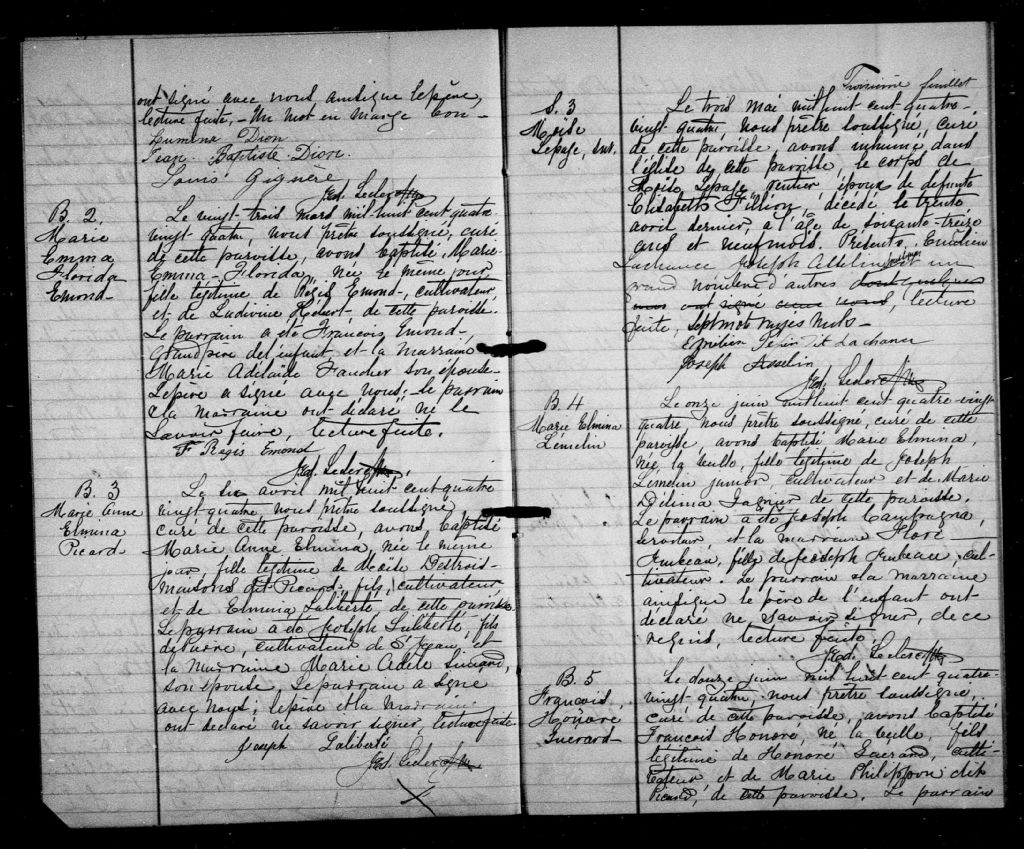 ont signé avec nous ainsique lepère,
lecture faite, - Un mot en marge bon -
Lumina Dion
Jean Baptiste Dion
Louis Giguère
Jed. Leclerc Ptre
B. 2.
Marie
Emma
Florida
Emond
Le vingt-trois mars mil-huit cent quatre
vingt quatre, nous prêtre soussigné, curé
de cette paroisse, avons baptisé, Marie
Emma - Florida, née le même jour
fille légitime de Régis Emond, cultivateur,
et de Ludivine Hébert de cette paroisse.
Le parrain a été Francois Emond
Grandpère del'enfant et la marraine
Marie Adelaide Faucher son épouse
Lepère a signé avec nous; le parrain
& la marraine ont déclaré ne le
savoir faire, lecture faite.
F Régis Emond
Jed. Leclerc Ptre
B. 3
Marie Anne
Elmina
Picard
Le six avril mil huit cent quatre
vingt quatre nous prêtre soussigné
curé de cette paroisse, avons baptisé
Marie Anne Elmina née le même
jour, fille légitime de
dit Picard, fils, cultivateur,
et de Elmina Laliberté, de cette paroisse
Le parrain a été Joseph Laliberté, fils
de Pierre, cultivateur de St Jean, et
la marraine Marie Adèle
son épouse, Le parrain a signé
avec nous; le père et la marraine
ont déclaré ne savoir signer, lecture faite
Joseph Laliberté
Jed. Leclerc Ptre
Troisième feuillet
S. 3
Moïse
Lepage,
Le trois mai mil huit cent quatre-
vingt quatre, nous prêtre soussigné, curé
de cette paroisse, avons inhumé dans
l'église de cette paroisse, le corps de
Moïse Lepage rentier époux de défunte
Elisabeth Fillion, décédé le trente
avril dernier, à l'âge de soixante-treize
ans et neuf mois. Présents, Emilien
Lachance Joseph Asselin soussignés et un
grand nombre d'autres dont quelques
uns ont signé avec nous, lecture
faite, sept mots rayés nuls -
dit Lachance
Joseph Asselin
Jed. Leclerc Ptre
B. 4
Marie Elmina
Lémelin
Le onze juin mil huit cent quatre-vingt
quatre nous prêtre soussigné, curé de cette
paroisse, avons baptisé Marie Elmina,
née la veille, fille légitime de Joseph
Lemelin junior, cultivateur et de Marie
Délima Gagnon de cette paroisse.
Le parrain a été Joseph Campagna,
et la marraine Flore
Imbeau, fille de Joseph Imbeau, cul-
tivateur. Le parrain & la marraine
ainsique le père de l'enfant ont
déclaré ne savoir signer, de ce
requis, lecture faite.
Jed. Leclerc Ptre
B. 5
Francois
Honoré
Guérard
Le douze juin mil huit cent quatre-
vingt quatre, nous prêtre soussigné,
curé de cette paroisse, avons baptisé
Francois Honoré, né la veille, fils
légitime de Honoré Guérard, culti-
vateur et de Marie Philippon dit
Picard, de cette paroisse. Le parrain